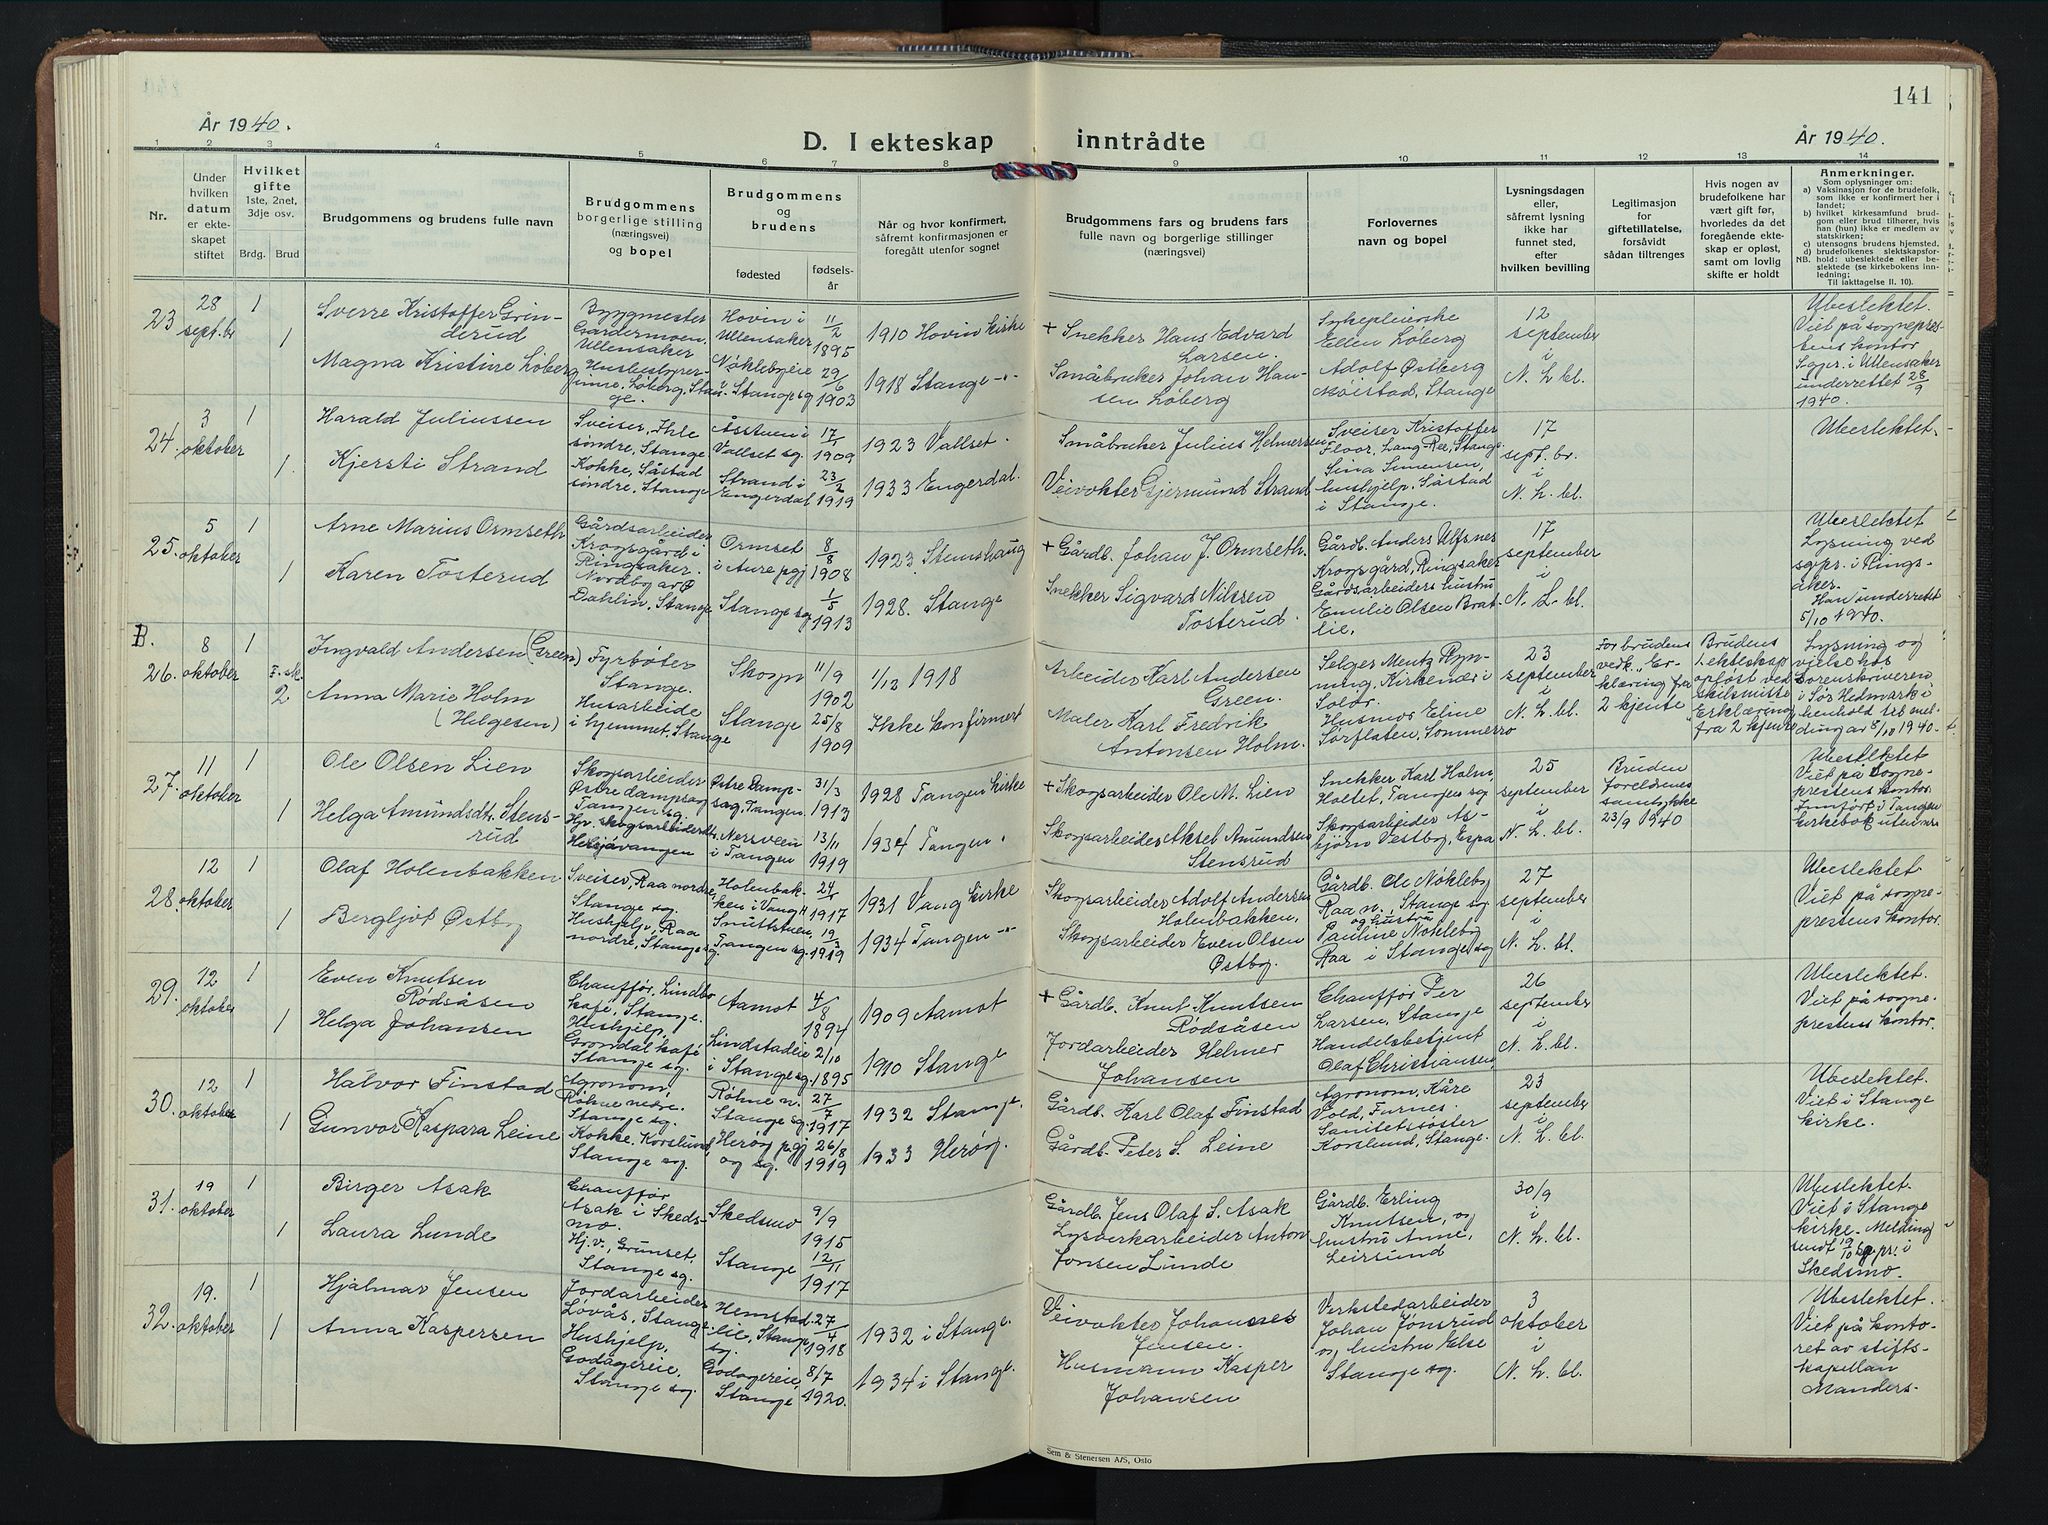 141
År 1940.
År 1940.
D. I ekteskap inntrådte
1 2 3 4 5 6 7 8 9 10 11 12 13 14
Nr.
Under hvilken datum er ekteskapet stiftet
Hvilket gifte 1ste, 2net, 3dje osv.
Brdg. Brud
Brudgommens og brudens fulle navn
Brudgommens borgerlige stilling (næringsvei) og bopel
Brudgommens og brudens
fødested
fødselsår
Når og hvor konfirmert, såfremt konfirmasjonen er foregått utenfor sognet
Brudgommens fars og brudens fars fulle navn og borgerlige stillinger (næringsvei)
Forlovernes navn og bopel
Lysningsdagen eller, såfremt lysning ikke har funnet sted, efter hvilken bevilling
Legitimasjon for giftetillatelse, forsåvidt sådan tiltrenges
Hvis nogen av brudefolkene har vært gift før, hvorledes da det foregående ekteskap er opløst, samt om lovlig skifte er holdt
Anmerkninger.
Som oplysninger om:
a) Vaksinasjon for de brudefolk, som ikke er konfirmert her i landet;
b) hvilket kirkesamfund brudgom eller brud tilhører, hvis han (hun) ikke er medlem av statskirken;
c) utensogns brudens hjemsted.
d) brudefolkenes slektskapsforhold: ubeslektede eller beslektede (se kirkebokens innledning;
NB.
Til iakttagelse II. 10).
23 28 sept.br 1 1
Sverre Kristoffer Grinderud
Magna Kristine Løberg
Byggmester Gardermoen, Ullensaker
Husbestyrerinne, Løberg, Stange.
Hovin i Ullensaker 11/2 1895
Nøklebyeie i Stange sg 29/6 1903
1910 Hovin kirke
1918 Stange -"-
+ Snekker Hans Edvard Larsen.
Småbruker Johan Hansen Løberg
Sykepleierske Ellen Løberg
Adolf Østberg Møistad, Stange
12 september i N. L. bl.
Ubeslektet. Viet på sogneprestens kontor Sogpr. i Ullensaker underrettet 28/9 1940.
24. 3 oktober 1 1
Harald Juliussen
Kjersti Strand
Sveiser, Ihle søndre, Stange
Kokke, Såstad søndre, Stange
Åsstuen i Vallset sg. 17/1 1909
Strand i Engerdal 23/2 1919
1923 Vallset.
1933 Engerdal.
Småbruker Julius Helmersen
Veivokter Gjermund Strand
Sveiser Kristoffer Floor, Lang-Ree, Stange
Sina Simensen, hushjelp, Såstad i Stange.
17 sept.br. i N. L. bl.
Ubeslektet.
25. 5 oktober 1 1
Arne Marius Ormseth
Karen Tosterud
Gårdsarbeider Krogsgård i Ringsaker.
Nordby av Ø Dahlin, Stange
Ormset i Aure pgj 8/8 1908
Stange sg 1/5 1913
1923. Stemshaug
1928. Stange
+ Gårdb. Johan J. Ormseth.
Snekker Sigvard Nilssen Tosterud.
Gårdb. Anders Ulfsnes Krogsgård, Ringsaker
Gårdsarbeiders hustru Emilie Olsen Bratlie,
17 september i N. L. bl.
Ubeslektet Lysning ved sgpr. i Ringsaker. Han underrettet 5/10 1940.
B. 26. 8 oktober 1 F. sk. 2
Ingvald Andersen (Green)
Anna Marie Holm (Helgesen)
Fyrbøter Stange.
Husarbeide i hjemmet, Stange
Skogn 11/9 1902
Stange 25/8 1909
1/12 1918
Ikke konfirmert
Arbeider Karl Andersen Green.
Maler Karl Fredrik Antonsen Holm.
Selger Mentz Rynning, Kirkenær i Solør.
Husmor Eline Sørflaten, Sommerro
23 september i N. L. bl.
For brudens vedk. Erklæring fra 2 kjente
Brudens ekteskap opløst ved skilsmisse Erklæring fra 2 kjente
Lysning og vielse hos sorenskriveren i Sør Hedmark i henhold til melding av 8/10 1940.
27. 11 oktober 1 1
Ole Olsen Lien
Helga Amundsdtr. Stensrud
Skogsarbeider Østre dampsag Tangen sg.
Hjv. skogsarbeiderdtr. Helgåvangen
Østre Dampsag, Tangen 31/3 1913
Nersveen i Tangen 13/11 1919
1928 Tangen kirke
1934 Tangen "
+ Skogsarbeider Ole M. Lien
Skogsarbeider Aksel Amundsen Stensrud
Snekker Karl Holm, Holtet, Tangen sg
Skogsarbeider Asbjørn Vestby, Espa
25 september i N. L. bl.
Bruden foreldrenes samtykke 23/9 1940
Ubeslektet Viet på Sogneprestens kontor. Innført i Tangen kirkebok uten nr.
28. 12 oktober 1 1
Olaf Holenbakken
Bergljot Østby
Sveiser, Raa nordre, Stange sg
Hushjelp, Raa nordre, Stange sg.
Holenbakken i Vang H 24/1 1917
Snuttstuen, Tangen sg. 19/3 1919
1931 Vang kirke
1934 Tangen -"-
Skogsarbeider Adolf Andersen Holenbakken,
Skogsarbeider Even Olsen Østby.
Gårdb. Ole Nøkleby Raa n., Stange sg
og hustru Pauline Nøkleby Raa i Stange sg
27 september i N. L. bl.
Ubeslektet Viet på sogneprestens kontor.
29. 12 oktober 1 1
Even Knutsen Rødsåsen
Helga Johansen
Chauffør, Lindbo kafé, Stange.
Hushjelp, Grøndal kafé Stange sg.
Aamot 4/8 1894
Lindstadeie i Stange sg. 2/10 1895
1909 Aamot
1910 Stange
+ Gårdb. Knut Knutsen Rødsåsen
Jordarbeider Helmer Johansen
Chauffør Per Larsen, Stange
Handelsbetjent Olaf Christiansen,
26 september i N. L. bl.
Ubeslektet. Viet på sogneprestens kontor.
30. 12 oktober 1 1
Halvor Finstad
Gunvor Kaspara Leine
Agronom, Røhne nedre. Stange sg.
Kokke, Korslund, Stange sg.
Røhne n. Stange sg. 27/7 1917
Herøy pgj og sg. 26/8 1919
1932 Stange.
1933 Herøy.
Gårdb. Karl Olaf Finstad
Gårdb. Peter S. Leine
Agronom, Kåre Vold, Furnes.
Sanitetssøster Korslund, Stange.
23 september i N. L. bl.
Ubeslektet. Viet i Stange kirke.
31. 19 oktober 1 1
Birger Asak
Laura Lunde
Chauffør Asak i Skedsmo.
Hj.v., Grunset, Stange sg.
Skedsmo 9/9 1915
Stange 12/11 1917
Gårdb. Jens Olaf S. Asak
Lysverkarbeider Anton Jonsen Lunde
Gårdb. Erling Knutsen, og hustru Anne, Leirsund
30/9 i N. L. bl.
Ubeslektet. Viet i Stange kirke. Melding sendt 19/10 sg.pr. i Skedsmo.
32. 19. oktober 1 1
Hjalmar Jensen
Anna Kaspersen
Jordarbeider Løvås, Stange.
Hushjelp, Godagereie, Stange sg.
Hemstadlie, Stange sg. 27/4 1918
Godagereie, Stange 8/7 1920.
1932 i Stange.
1934 i Stange.
Veivokter Johannes Jensen.
Husmann Kasper Johansen
Verkstedarbeider Johan Jønsrud og hustru Else Stange sg.
3 oktober i N. L. bl.
Ubeslektet. Viet på kontoret av stiftskapellan Manders-
Sem & Stenersen A/S, Oslo